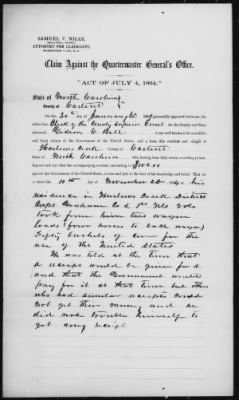 SAMUEL V. NILES,
ATTORNEY FOR CLAIMANTS,
WASHINGTON CITY, D. C.
Claim Against the Quartermaster General's Office.
"ACT OF JULY 4, 1864."
State of North Carolina
County of Carteret
On this 30th day of January 187 personally appeared before me, the
subscriber Clerk of the County Superior Court for the County and State
aforesaid, Gideon C. Bell to me well known to be a credible
and loyal citizen of the Government of the United States, and a bona fide resident and citizen of
Harlows Creek County of Carteret
State of North Carolina who having been duly sworn according to law,
deposes and says that the accompanying account, amounting to $100.00
against the Government of the United States, is true and just to the best of his knowledge and belief. That on
the 10th day of November 186 at his
residence in Harlows Creek District
Capt Graham Co L 1st Vols
took from him two wagon
loads (four horses to each wagon)
Fifty bushels of corn for the
use of the United States
He was told at the time that
a receipt would be given for it
and that the Government would
pay for it at that time but others
who had similar receipts could
not get their money and he
did not trouble himself to
get any receipt